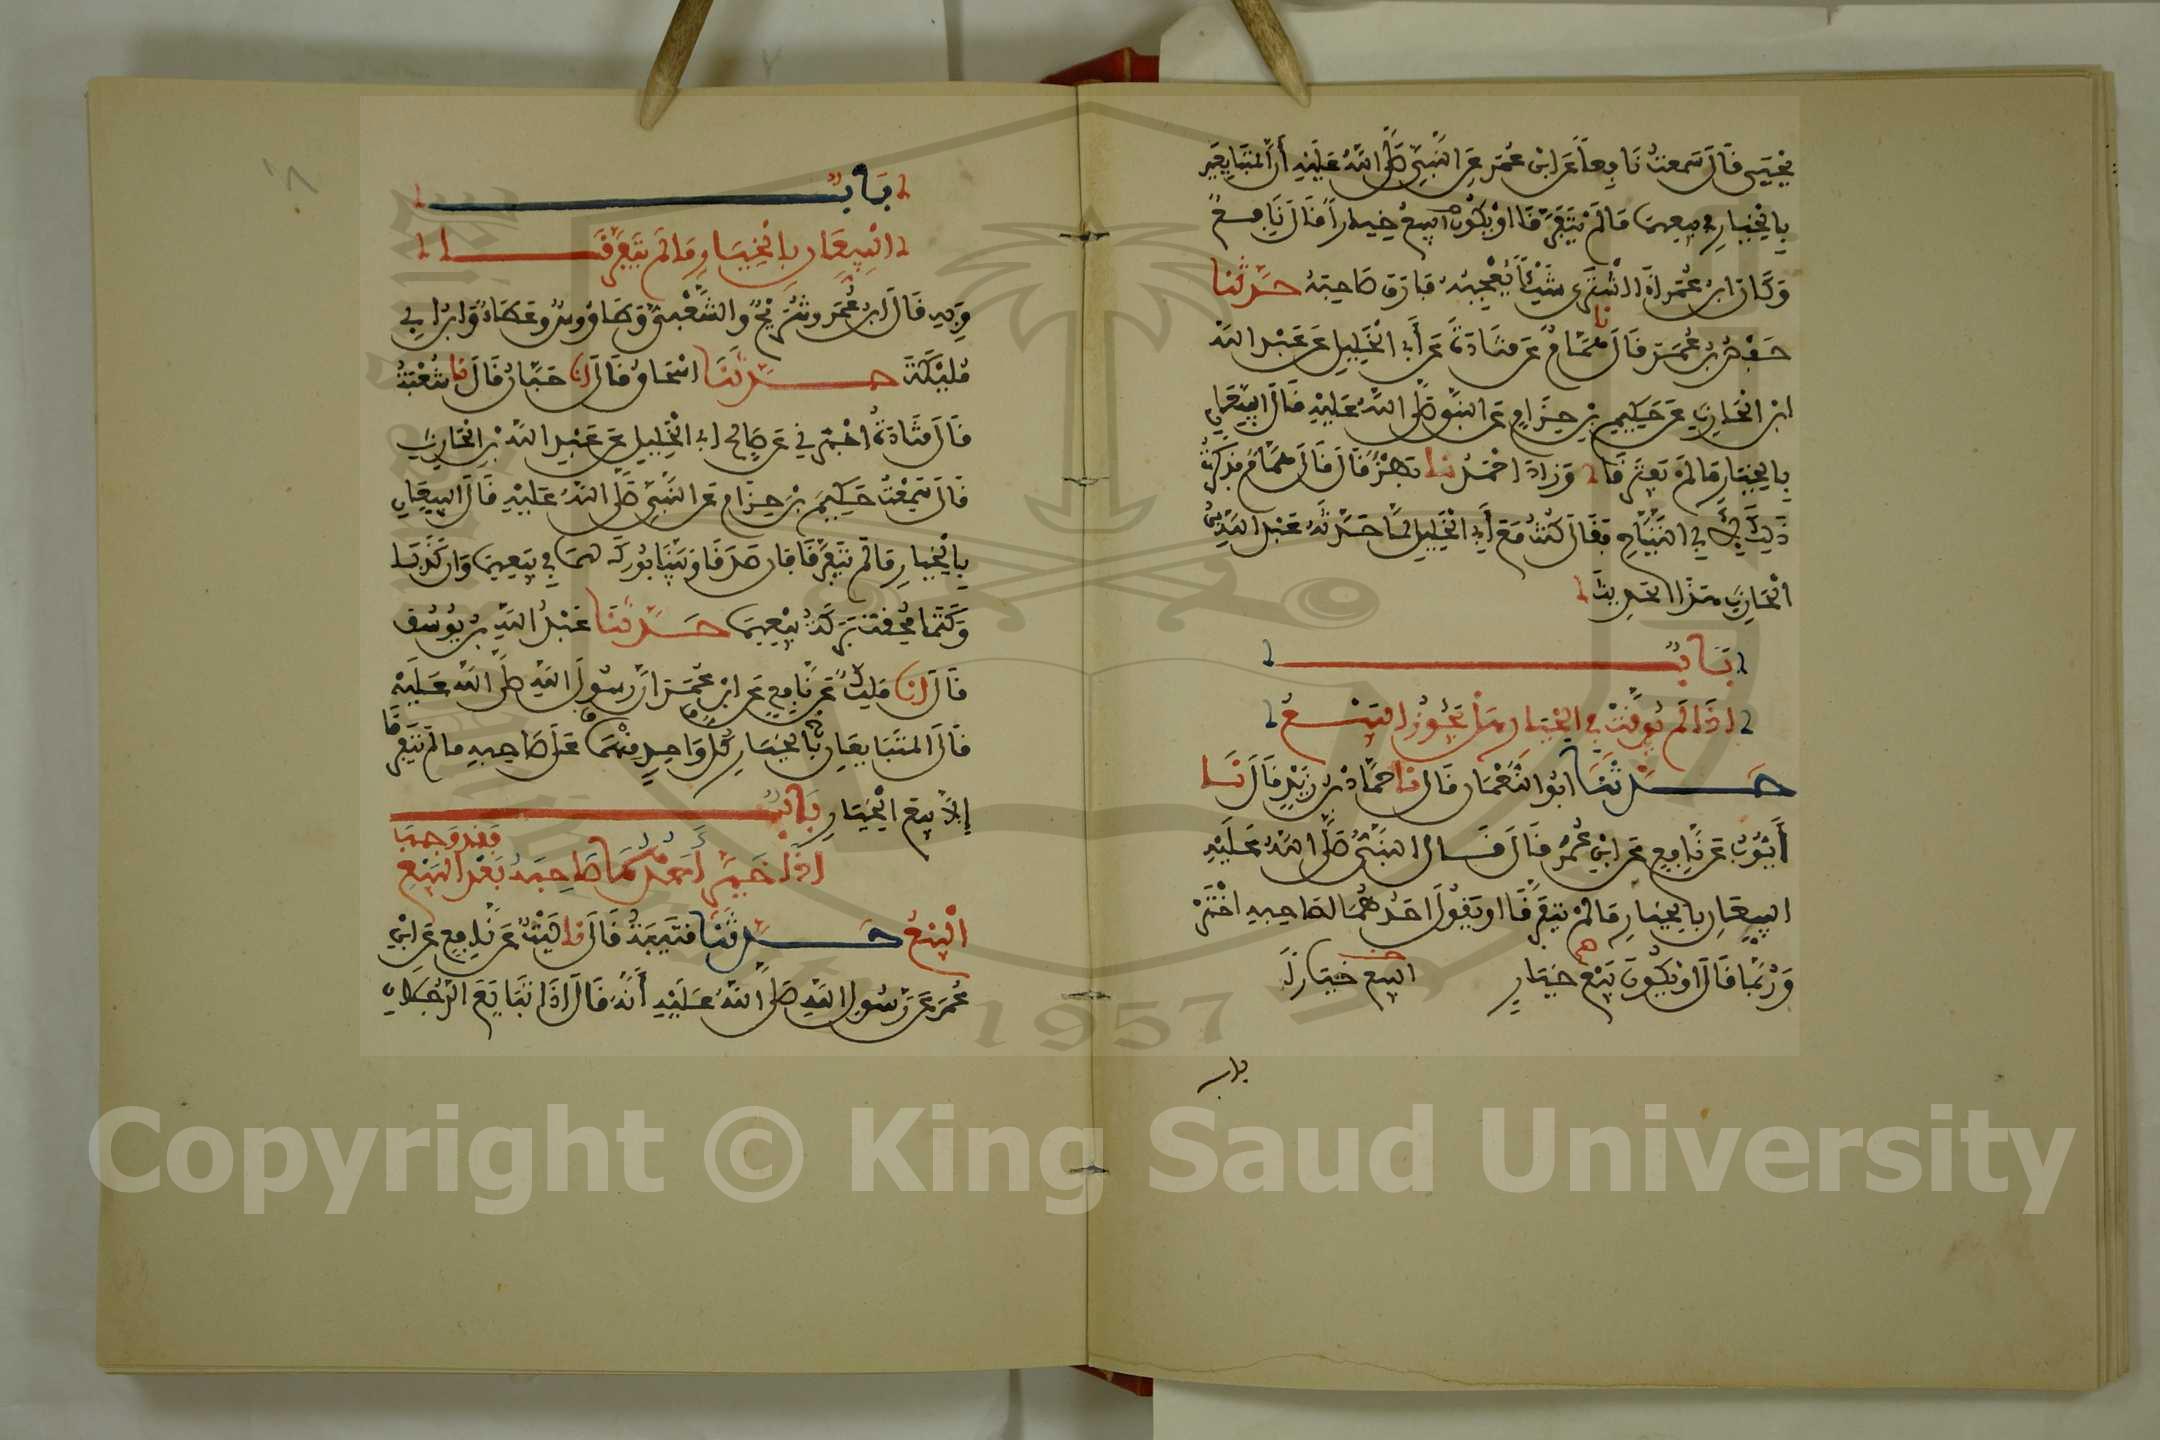 يحيى قال سمعت نافعا عن ابن عمر عن النبي صلى الله عليه أن المتبايعين
بالخيار في بيعهما ما لم يتفرقا او يكون البيع خيارا قال نافع
وكان ابن عمر اذا اشترى شيئا يعجبه فارق صاحبه حدثنا
حفص بن عمر قال نا همام عن قتادة عن أبي الخليل عن عبد الله
ابن الحارث عن حكيم بن حزام عن النبي صلى الله عليه قال البيعان
بالخيار ما لم يفترقا وزاد احمد نا بهز قال قال همام فذكرت
ذلك لأبي التياح فقال كنت مع أبي الخليل لما حدثه عبد الله بن
الحارث هذا الحديث
باب
اذا لم يوقت في الخيار هل يجوز البيع
حدثنا ابو النعمان قال نا حماد بن زيد قال نا
أيوب عن نافع عن ابن عمر قال قال النبي صلى الله عليه
البيعان بالخيار ما لم يتفرقا او يقول احدهما لصاحبه اختر
وربما قال او يكون بيع خيار البيع خيار
باب
باب
البيعان بالخيار ما لم يتفرقا
وبه قال ابن عمر وشريح والشعبي وطاووس وعطاء وابن ابي
مليكة حدثنا اسحاق قال انا حبان قال نا شعبة
قال قتادة اخبرني عن صالح ابي الخليل عن عبد الله بن الحارث
قال سمعت حكيم بن حزام عن النبي صلى الله عليه قال البيعان
بالخيار ما لم يتفرقا فان صدقا وبينا بورك لهما في بيعهما وان كذبا
وكتما محقت بركة بيعهما حدثنا عبد الله بن يوسف
قال انا مالك عن نافع عن ابن عمر ان رسول الله صلى الله عليه
قال المتبايعان بالخيار كل واحد منهما على صاحبه ما لم يتفرقا
إلا بيع الخيار باب
اذا خير أحدهما صاحبه بعد البيع فقد وجب
البيع حدثنا قتيبة قال نا ليث عن نافع عن ابن
عمر عن رسول الله صلى الله عليه أنه قال اذا تبايع الرجلان
1957
Copyright © King Saud University